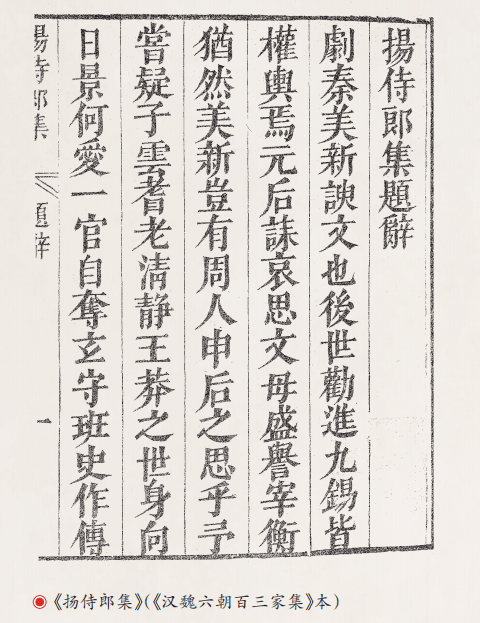 揚侍郎集題辭
劇秦美新諛文也後世勸進九錫皆
權輿焉元后誄哀思文母盛譽宰衡
猶然美新豈有周人申后之思乎予
嘗疑子雲耆老清靜王莽之世身向
日景何愛一官自奪玄守班史作傳
揚侍郎集 題辭 一
《扬侍郎集》(《汉魏六朝百三家集》本)